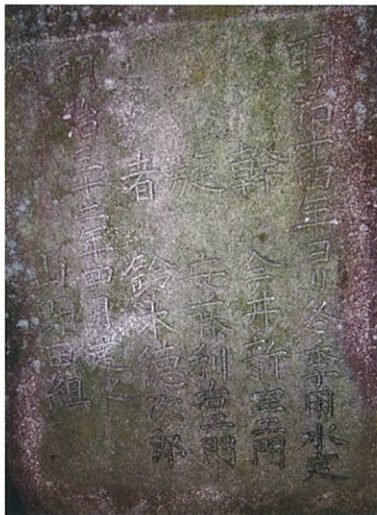 明治十四年ヨリ冬季用水定
幹 今井新左エ門
旋 安藤利右エ門
者 鈴木徳次郎
明治三十二年四月建之
山野田組